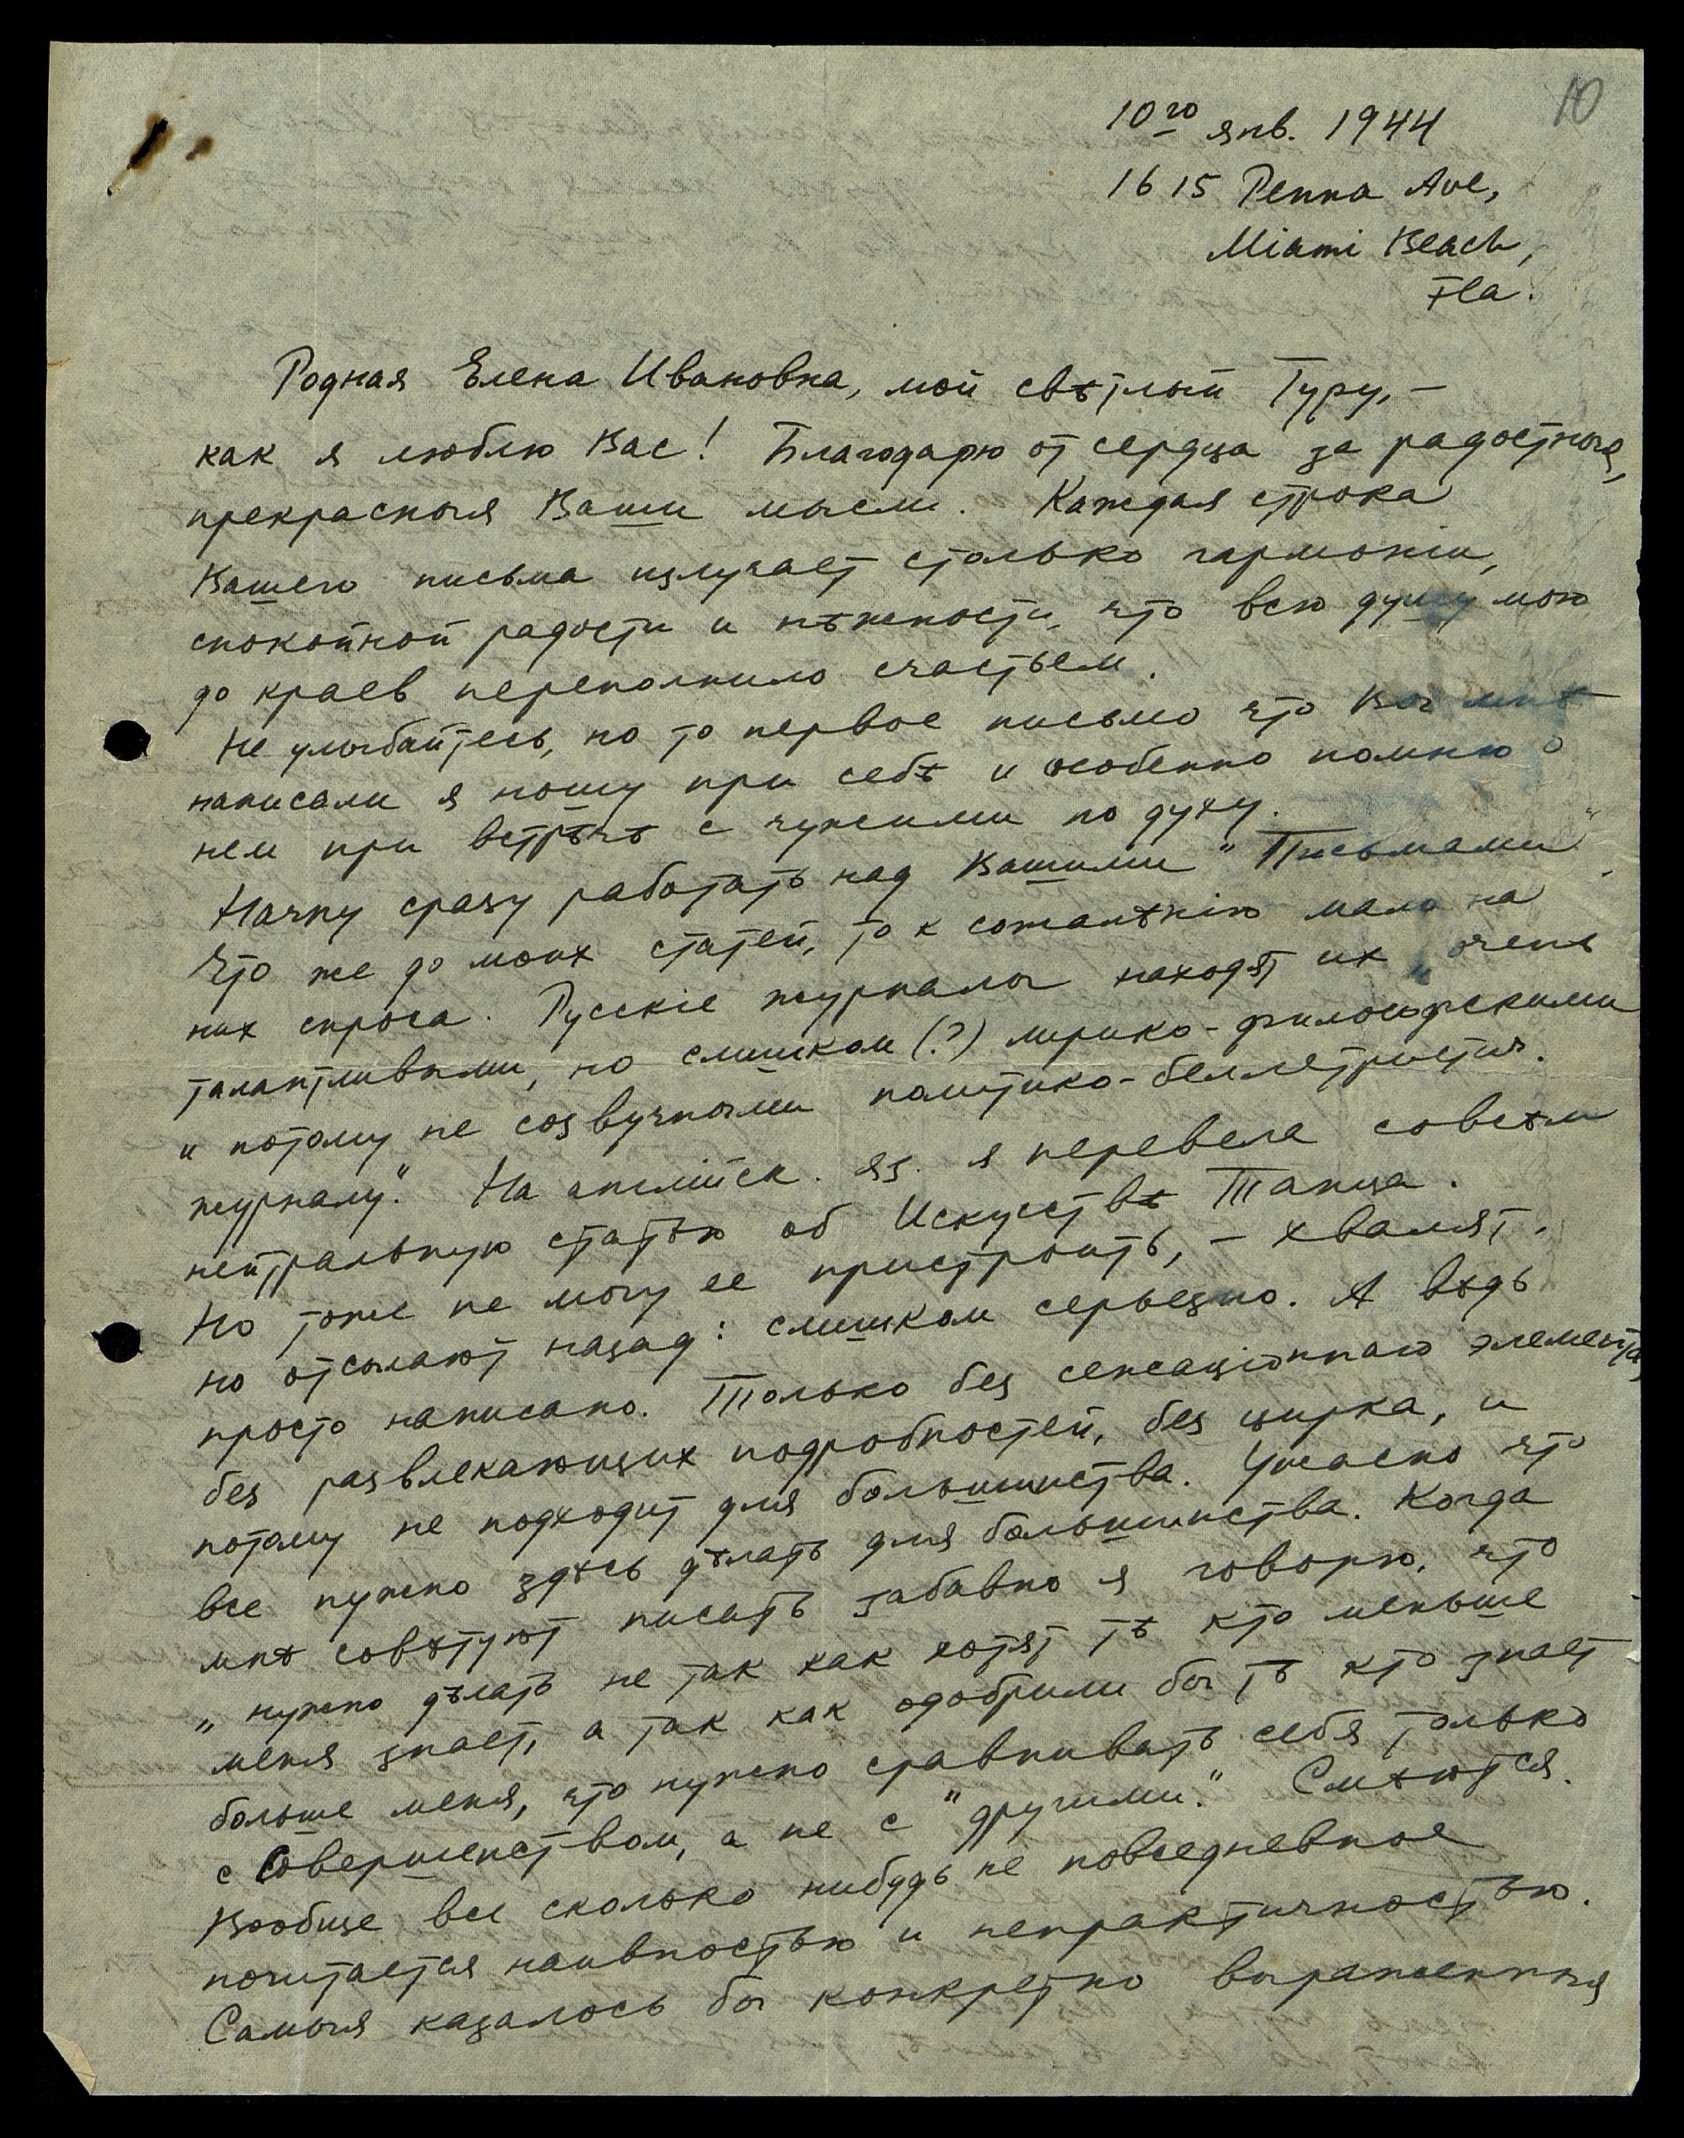 10
10го янв. 1944
1615 Penna Ave,
Miami Beach,
Fla.
Родная Елена Ивановна, мой свѣтлый Гуру, –
как я люблю Вас! Благодарю от сердца за радостныя,
прекрасныя Ваши мысли. Каждая строка
Вашего письма излучает столько гармонiи,
спокойной радости и нѣжности, что всю душу мою
до краев переполнило счастьем.
Не улыбайтесь, но то первое письмо что Вы мнѣ
написали я ношу при себѣ и особенно помню о
нем при встрѣчѣ с чужими по духу.
Начну сразу работать над Вашими "Письмами".
Что же до моих статей, то к сожалѣнiю мало на
них спроса. Русскiе журналы находят их „очень
талантливыми, но слишком (?) лирико-философскими
и потому не созвучными политико-беллетристич.
журналу." На англiйск. яз. я перевела совсѣм
нейтральную статью об Искусствѣ Танца.
Но тоже не могу ее пристроить, – хвалят,
но отсылают назад: слишком серьезно. А вѣдь
просто написано. Только без сенсацiоннаго элемента,
без развлекающих подробностей, без цирка, и
потому не подходит для большинства. Ужасно что
все нужно здѣсь дѣлать для большинства. Когда
мнѣ совѣтуют писать забавно я говорю, что
„нужно дѣлать не так как хотят тѣ кто меньше
меня знает, а так как одобрили бы тѣ кто знает
больше меня, что нужно сравнивать себя только
с Совершенством, а не с "другими." Смѣются.
Вообще все сколько нибудь не повседневное
почитается наивностью и непрактичностью.
Самыя казалось бы конкретно выраженныя